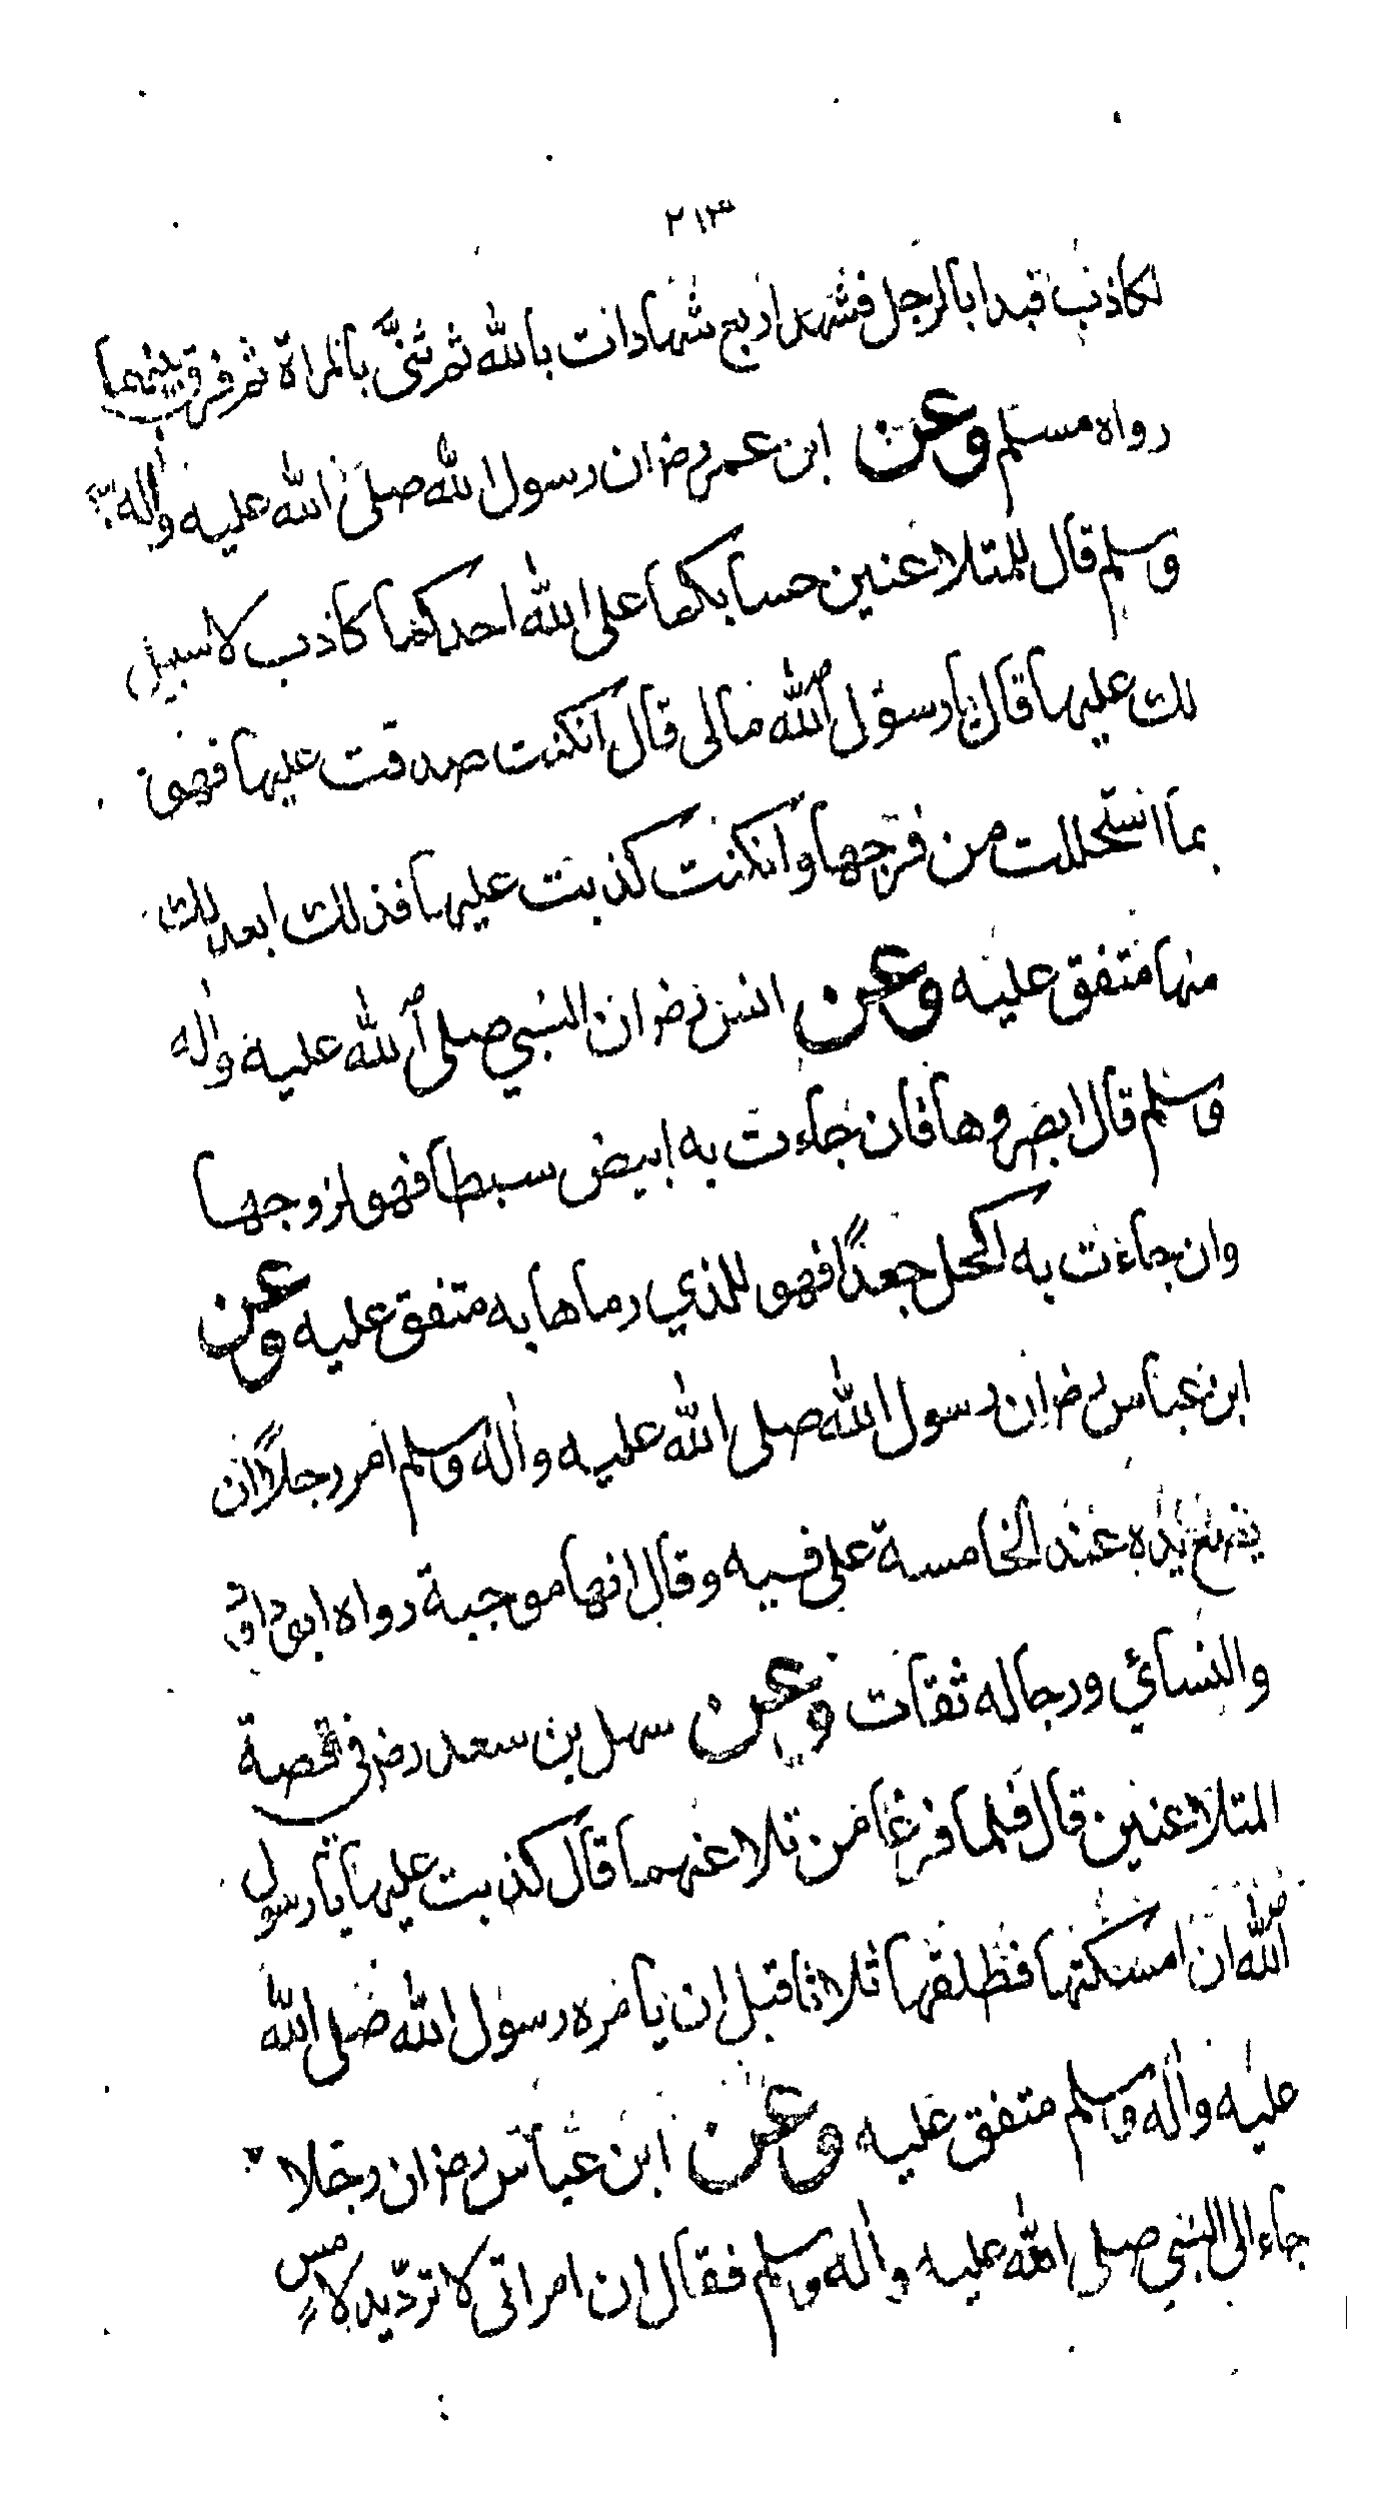 ٢١٣
لكاذب فبدا بالرجل فشهد اربع شهادات بالله ثم ثنّى بالمراة ثم فرق بينهما
رواه مسلم وعن ابن عمر رض ان رسول الله صلى الله عليه واله
وسلم قال للمتلاعنين حسابكما على الله احدكما كاذب لا سبيل
لك عليها قال يا رسول الله مالى قال انكنت صدقت عليها فهو
بما استحللت من فرجها وانكنت كذبت عليها فذلك ابعد لك
منها متفق عليه وعن انس رض ان النبي صلى الله عليه واله
وسلم قال ابصروها فان جاءت به ابيض سبطا فهو لزوجها
وان جاءت به اكحل جعدًا فهو للذي رماها به متفق عليه وعن
ابن عباس رض ان رسول الله صلى الله عليه واله وسلم امر رجلاً ان
يضع يده عند الخامسة على فيه وقال انها موجبة رواه ابو داود
والنسائي ورجاله ثقات وعن سهل بن سعد رض فى قصة
المتلاعنين قال فلما فرغا من تلاعنهما قال كذبت عليها يا رسول
الله ان امسكتها فطلقها ثلاثا قبل ان يامره رسول الله صلى الله
عليه واله وسلم متفق عليه وعن ابن عباس رض ان رجلا
جاء الى النبي صلى الله عليه واله وسلم فقال ان امراتى لا تردّ يد لامس